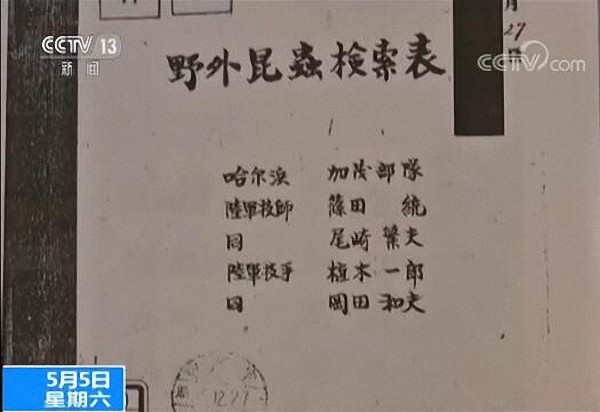 CCTV 13
新闻
月
27
CCTV.com
野外昆蟲検索表
哈尔浜 加茂部隊
陸軍技師 篠田 統
同 尾崎繁夫
陸軍技手 植木一郎
同 岡田和夫
12.27
5月5日
星期六